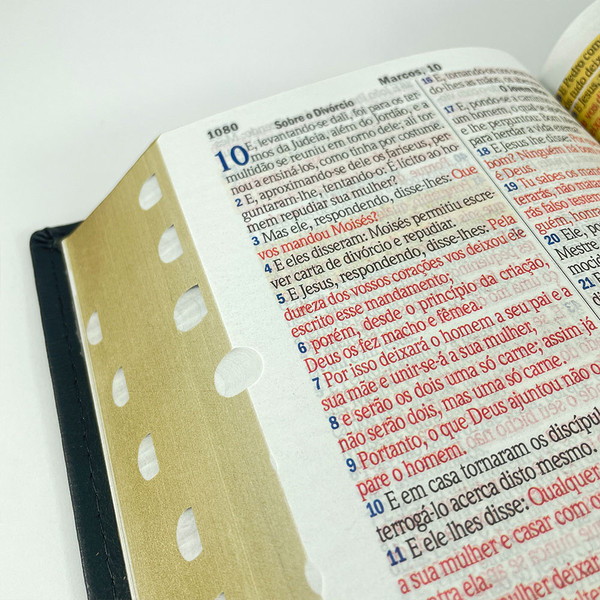 1080
Marcos, 10
Sobre o Divórcio
10 E, levantando-se dali, foi para os ter-
mos da Judeia, além do Jordão, e a
multidão se reuniu em torno dele; ali tor-
nou a ensiná-los, como tinha por costume.
2 E, aproximando-se dele os fariseus, per-
guntaram-lhe, tentando-o: É lícito ao ho-
mem repudiar sua mulher?
3 Mas ele, respondendo, disse-lhes: Que
vos mandou Moisés?
4 E eles disseram: Moisés permitiu escre-
ver carta de divórcio e repudiar.
5 E Jesus, respondendo, disse-lhes: Pela
dureza dos vossos corações vos deixou ele
escrito esse mandamento;
6 porém, desde o princípio da criação,
Deus os fez macho e fêmea.
7 Por isso deixará o homem a seu pai e a
sua mãe e unir-se-á a sua mulher,
8 e serão os dois uma só carne; assim já
não serão dois, mas uma só carne.
9 Portanto, o que Deus ajuntou não o
pare o homem.
10 E em casa tornaram os discípul
terrogá-lo acerca disto mesmo.
11 E ele lhes disse: Qualquer
a sua mulher e casar com o
tra ela.
er deixar
16 E, tomando-os nos
do-lhes as mãos,
O jovem
17 E, pondo-se a camin
um homem, o qual
e lhe perguntou: Bom
para herdar a vida
18 E Jesus lhe disse:
bom? Ninguém há
é Deus.
19 Tu sabes os man
terarás; não mata
rás falso teste
guém; honr
20 Ele, po
Mestre
mocid
21 E
Pedro com